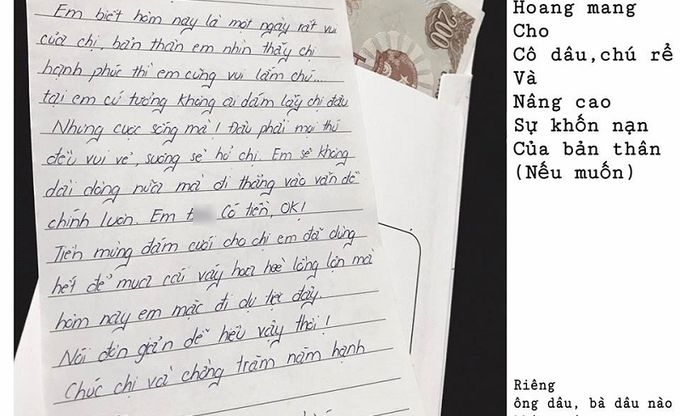 Em biết hôm nay là một ngày rất vui
của chị, bản thân em nhìn thấy chị
hạnh phúc thì em cũng vui lắm chứ...
tại em cứ tưởng không ai dám lấy chị đâu
Nhưng cuộc sống mà! Đâu phải mọi thứ
đều vui vẻ, suông sẻ hở chị. Em sẽ không
dài dòng nữa mà đi thẳng vào vấn đề
chính luôn. Em Có tiền, OK!
Tiền mừng đám cưới cho chị em đã dùng
hết để mua cái váy hoa hoè lồng lộn mà
hôm nay em mặc đi dự tiệc đấy.
Nói đơn giản dễ hiểu vậy thôi!
Chúc chị và chồng trăm năm hạnh
200
Hoang mang
Cho
Cô dâu,chú rể
Và
Nâng cao
Sự khốn nạn
Của bản thân
(Nếu muốn)
Riêng
ông dâu, bà dâu nào